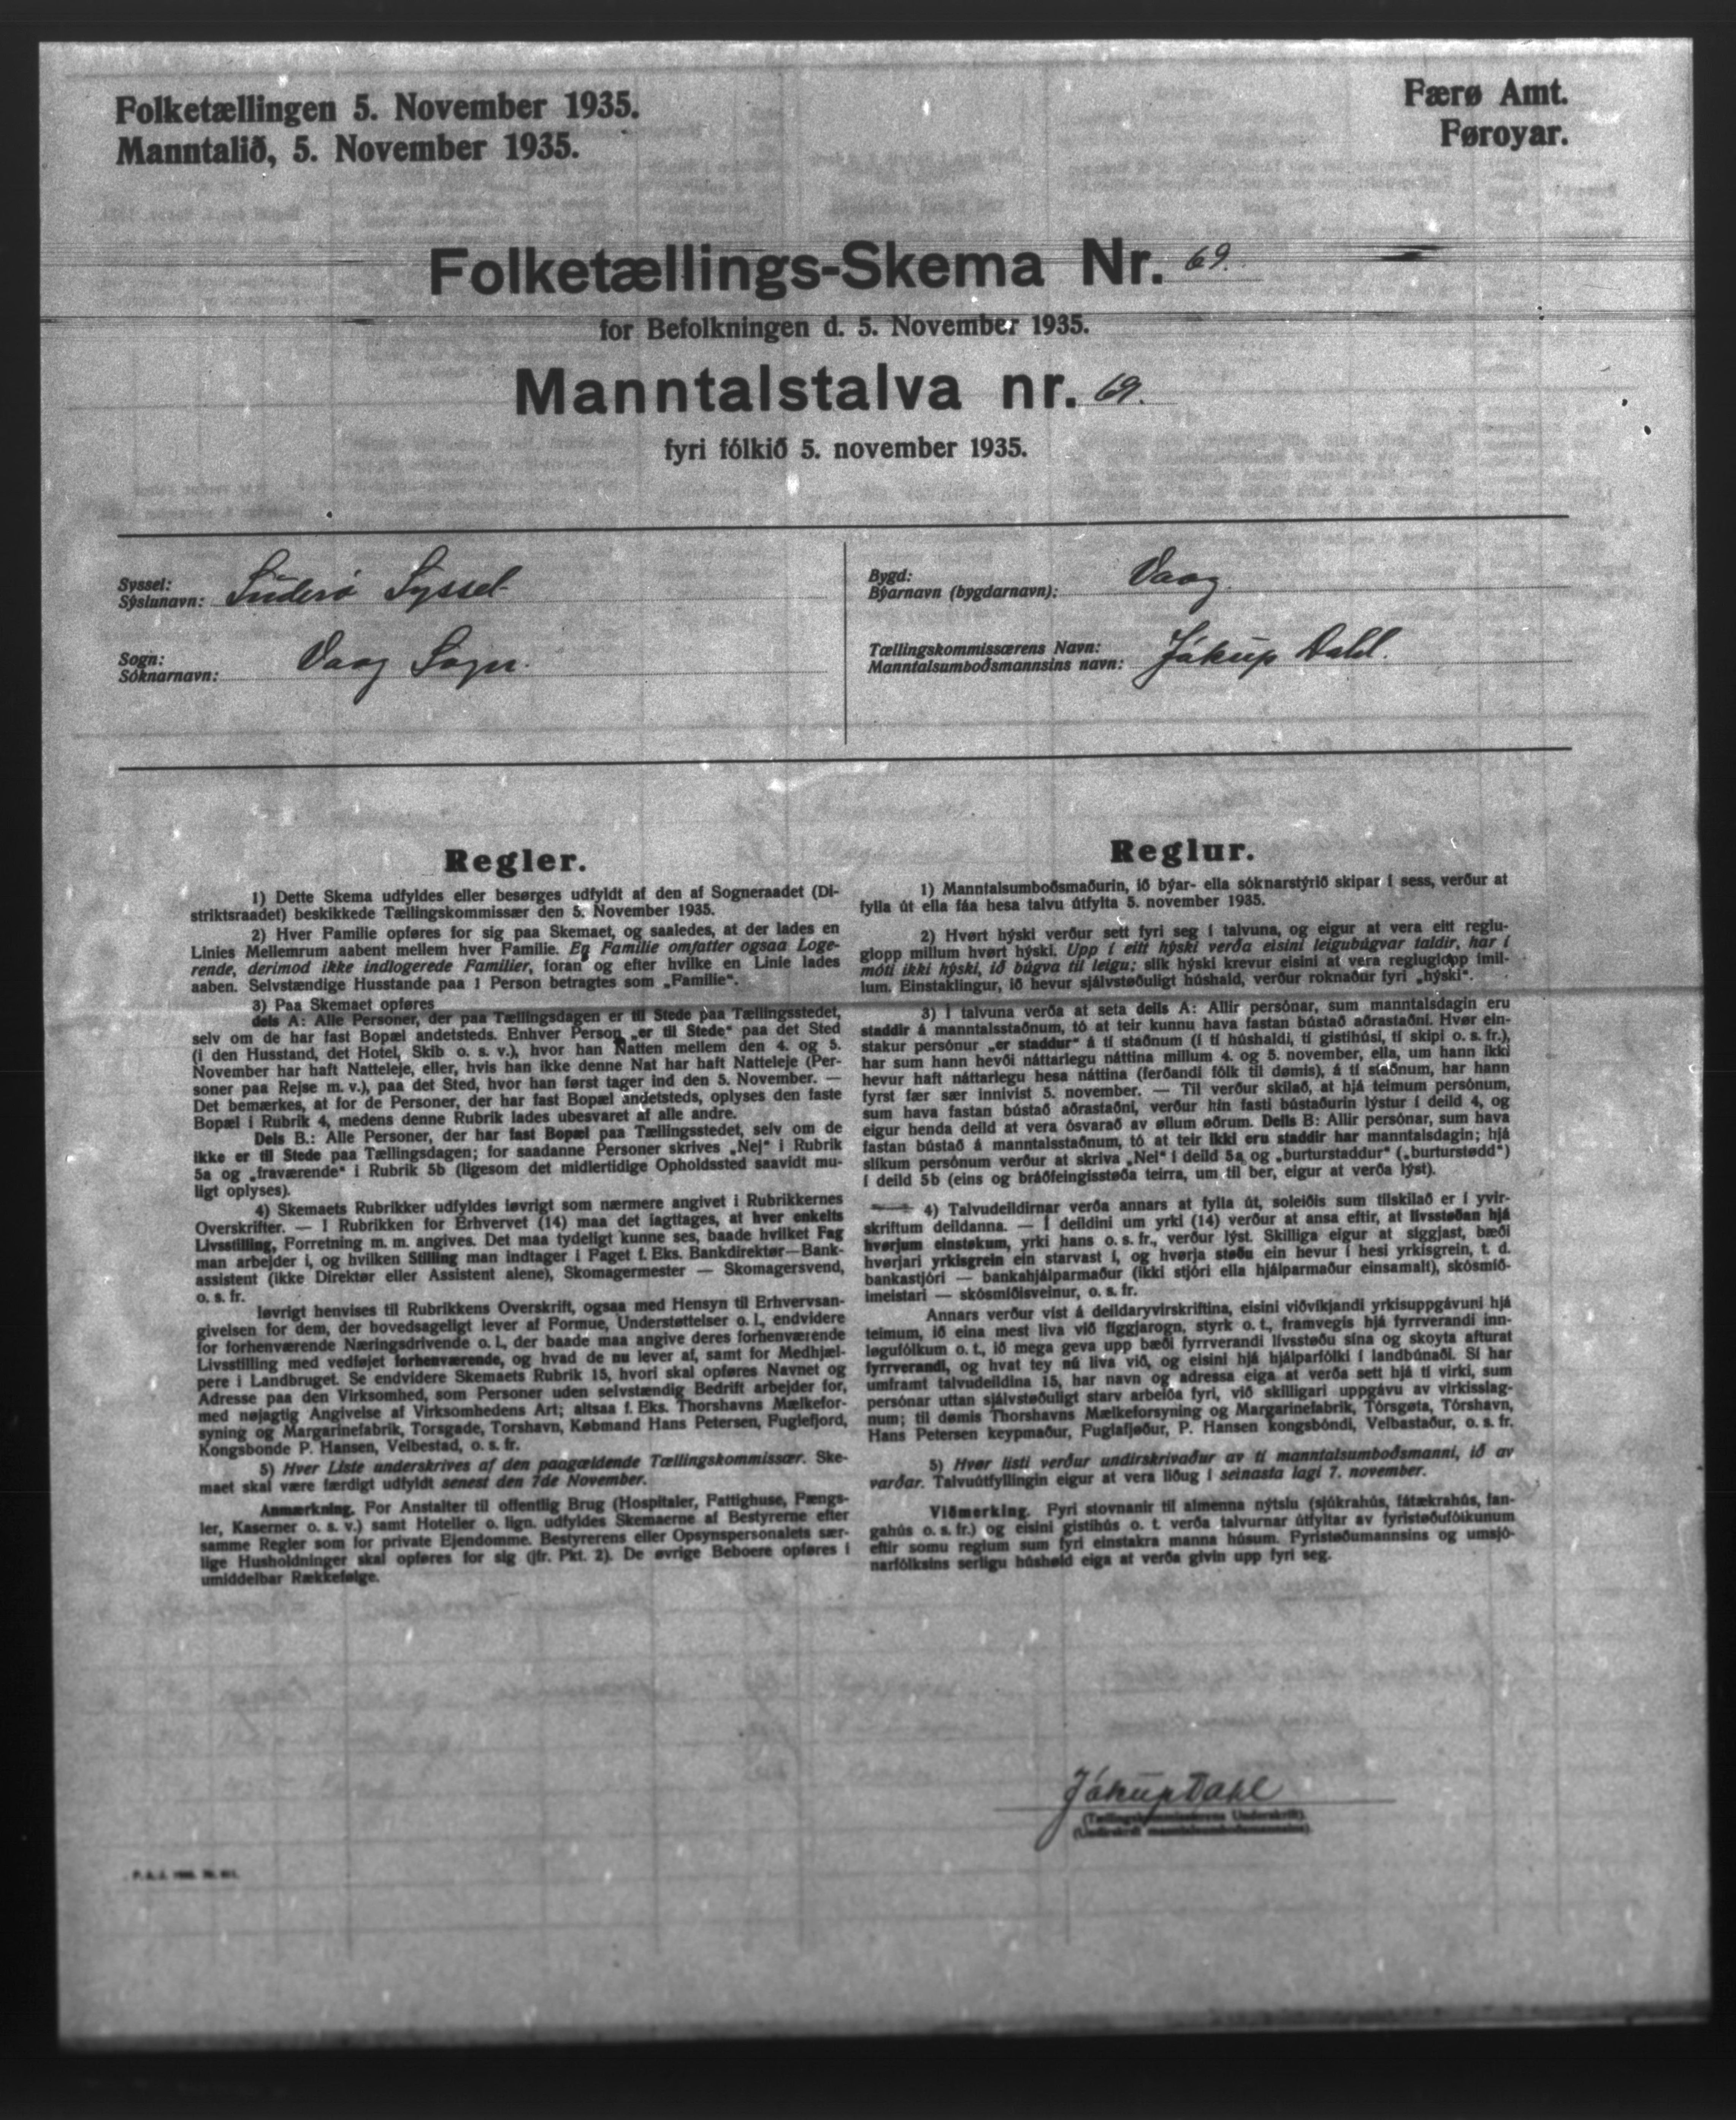 Folketællingen 5. November 1935.
Manntalið, 5. November 1935.
Færø Amt.
Føroyar.
Folketællings-Skema Nr. 69.
for Befolkningen d. 5. November 1935.
Manntalstalva nr. 69.
fyri fólkið 5. november 1935.
Syssel:
Sýslunavn: Suderø Syssel
Sogn:
Sóknarnavn: Vaag Sogn.
Bygd:
Býarnavn (bygdarnavn): Vaag.
Tællingskommissærens Navn:
Manntalsumboðsmannsins navn: Jákup Dahl.
Regler.
1) Dette Skema udfyldes eller besørges udfyldt af den af Sogneraadet (Di-
striktsraadet) beskikkede Tællingskommissær den 5. November 1935.
2) Hver Familie opføres for sig paa Skemaet, og saaledes, at der lades en
Linies Mellemrum aabent mellem hver Familie. En Familie omfatter ogsaa Loge-
rende, derimod ikke indlogerede Familier, foran og efter hvilke en Linie lades
aaben. Selvstændige Husstande paa 1 Person betragtes som „Familie“.
3) Paa Skemaet opføres
dels A: Alle Personer, der paa Tællingsdagen er til Stede paa Tællingsstedet,
selv om de har fast Bopæl andetsteds. Enhver Person „er til Stede“ paa det Sted
(i den Husstand, det Hotel, Skib o. s. v.), hvor han Natten mellem den 4. og 5.
November har haft Natteleje, eller, hvis han ikke denne Nat har haft Natteleje (Per-
soner paa Rejse m. v.), paa det Sted, hvor han først tager ind den 5. November. —
Det bemærkes, at for de Personer, der har fast Bopæl andetsteds, oplyses den faste
Bopæl i Rubrik 4, medens denne Rubrik lades ubesvaret af alle andre.
Dels B.: Alle Personer, der har fast Bopæl paa Tællingsstedet, selv om de
ikke er til Stede paa Tællingsdagen; for saadanne Personer skrives „Nej“ i Rubrik
5a og „fraværende“ i Rubrik 5b (ligesom det midlertidige Opholdssted saavidt mu-
ligt oplyses).
4) Skemaets Rubrikker udfyldes løvrigt som nærmere angivet i Rubrikkernes
Overskrifter. — I Rubrikken for Erhvervet (14) maa det iagttages, at hver enkelts
Livsstilling, Forretning m. m. angives. Det maa tydeligt kunne ses, baade hvilket Fag
man arbejder i, og hvilken Stilling man indtager i Faget f. Eks. Bankdirektør—Bank-
assistent (ikke Direktør eller Assistent alene), Skomagermester — Skomagersvend,
o. s. fr.
Iøvrigt henvises til Rubrikkens Overskrift, ogsaa med Hensyn til Erhvervsan-
givelsen for dem, der hovedsageligt lever af Formue, Understøttelser o. l., endvidere
for forhenværende Næringsdrivende o. l., der baade maa angive deres forhenværende
Livsstilling med vedføjet forhenværende, og hvad de nu lever af, samt for Medhjæl-
pere i Landbruget. Se endvidere Skemaets Rubrik 15, hvori skal opføres Navnet og
Adresse paa den Virksomhed, som Personer uden selvstændig Bedrift arbejder for,
med nøjagtig Angivelse af Virksomhedens Art; altsaa f. Eks. Thorshavns Mælkefor-
syning og Margarinefabrik, Torsgade, Torshavn, Købmand Hans Petersen, Fuglefjord,
Kongsbonde P. Hansen, Velbestad, o. s. fr.
5) Hver Liste underskrives af den paagældende Tællingskommissær. Ske-
maet skal være færdigt udfyldt senest den 7de November.
Anmærkning. For Anstalter til offentlig Brug (Hospitaler, Fattighuse, Fængs-
ler, Kaserner o. s. v.) samt Hoteller o. lign. udfyldes Skemaerne af Bestyrerne efter
samme Regler som for private Ejendomme. Bestyrerens eller Opsynspersonalets sær-
lige Husholdninger skal opføres for sig (jfr. Pkt. 2). De øvrige Beboere opføres i
umiddelbar Rækkefølge.
Reglur.
1) Manntalsumboðsmaðurin, ið býar- ella sóknarstýrið skipar í sess, verður at
fylla út ella fáa hesa talvu útfylta 5. november 1935.
2) Hvørt hýski verður sett fyri seg í talvuna, og eigur at vera eitt reglu-
glopp millum hvørt hýski. Upp í eitt hýski verða eisini leigubúgvar taldir, har í
móti ikki hýski, ið búgva til leigu; slík hýski krevur eisini at vera regluglopp ímil-
lum. Einstaklingur, ið hevur sjálvstøðuligt húshald, verður roknaður fyri „hýski“.
3) Í talvuna verða at seta deils A: Allir persónar, sum manntalsdagin eru
staddir á manntalsstaðnum, tó at teir kunnu hava fastan bústað aðrastaðni. Hvør ein-
stakur persónur „er staddur“ á tí staðnum (í tí húshaldi, tí gistihúsi, tí skipi o. s. fr.),
har sum hann hevði náttarlegu náttina millum 4. og 5. november, ella, um hann ikki
hevur haft náttarlegu hesa náttina (ferðandi fólk til dømis), á tí staðnum, har hann
fyrst fær sær innivist 5. november. — Til verður skilað, at hjá teimum persónum,
sum hava fastan bústað aðrastaðni, verður hin fasti bústaðurin lýstur í deild 4, og
eigur henda deild at vera ósvarað av øllum øðrum. Deils B: Allir persónar, sum hava
fastan bústað á manntalsstaðnum, tó at teir ikki eru staddir har manntalsdagin; hjá
slíkum persónum verður at skriva „Nei“ í deild 5a og „burturstaddur“ („burturstødd“)
í deild 5b (eins og bráðfeingisstøða teirra, um til ber, eigur at verða lýst).
4) Talvudeildirnar verða annars at fylla út, soleiðis sum tilskilað er í yvir-
skriftum deildanna. — Í deildini um yrki (14) verður at ansa eftir, at livsstøðan hjá
hvørjum einstøkum, yrki hans o. s. fr., verður lýst. Skilliga eigur at siggjast, bæði
hvørjari yrkisgrein ein starvast í, og hvørja støðu ein hevur í hesi yrkisgrein, t. d.
bankastjóri — bankahjálparmaður (ikki stjóri ella hjálparmaður einsamalt), skósmið-
imeistari — skósmiðisveinur, o. s. fr.
Annars verður víst á deildaryvirskriftina, eisini viðvíkjandi yrkisuppgávuni hjá
teimum, ið eina mest liva við figgjarogn, styrk o. t., framvegis hjá fyrrverandi inn-
løgufólkum o. t., ið mega geva upp bæði fyrrverandi livsstøðu sína og skoyta afturat
fyrrverandi, og hvat tey nú liva við, og eisini hjá hjálparfólki í landbúnaði. Sí har
umframt talvudeildina 15, har navn og adressa eiga at verða sett hjá tí virki, sum
persónar uttan sjálvstøðuligt starv arbeiða fyri, við skilligari uppgávu av virkisslag-
num; til dømis Thorshavns Mælkeforsyning og Margarinefabrik, Tórsgøta, Tórshavn,
Hans Petersen keypmaður, Fuglafjøður, P. Hansen kongsbóndi, Velbastaður, o. s. fr.
5) Hvør listi verður undirskrivaður av tí manntalsumboðsmanni, ið av
varðar. Talvuútfyllingin eigur at vera liðug í seinasta lagi 7. november.
Viðmerking. Fyri stovnanir til almenna nýtslu (sjúkrahús, fátækrahús, fan-
gahús o. s. fr.) og eisini gistihús o. t. verða talvurnar útfyltar av fyristøðufólkunum
eftir somu reglum sum fyri einstakra manna húsum. Fyristøðumannsins og umsjó-
narfólksins serligu húshøld eiga at verða givin upp fyri seg.
Jákup Dahl
(Tællingskommissærens Underskrift).
(Undirskrift manntalsumboðsmannsins).